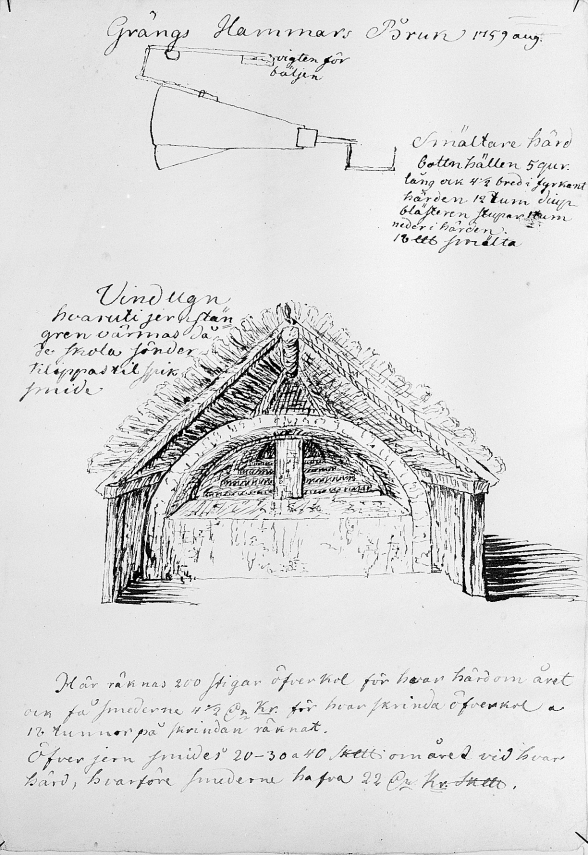 Grängs Hammars Bruk 1759 aug.
vigten för
bäljen
Smältare härd
bottnhällen 5 qur.
lång ock 4½ bred i fyrkant
härden 12 tum diup
blästeren stupar tum
neder i härden.
smälta
Vindugn
hvaruti jernstän
gren värmas då
de skola sönder
klippas til spik
smide
Här räknas 200 stigar öfverkol för hvar härd om året
ock få smederne 4½ Kr. för hvar skrinda öfverkol a
12 tunnor på skrindan räknat.
Öfver jern smides 20-30 a 40 om året vid hvar
härd, hvarföre smederne hafva 22 Kr.